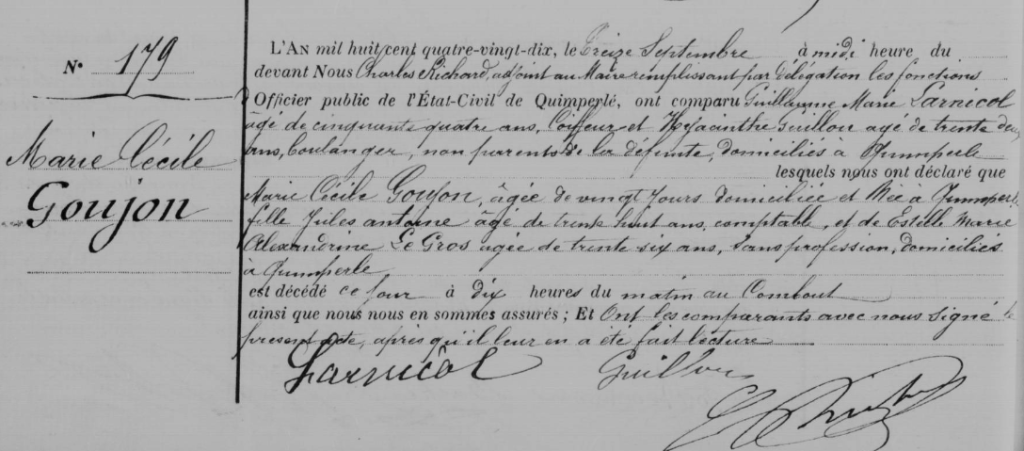 N° 179
Marie Cécile
Goujon
L'AN mil huit cent quatre-vingt-dix, le Treize Septembre à midi heure du
devant Nous Charles Richard, adjoint au Maire remplissant par délégation les fonctions
d'Officier public de l'État-Civil de Quimperlé, ont comparu Guillaume Marie Larnicol
âgé de cinquante quatre ans, Coiffeur et Hyacinthe Guillou agé de trente
ans, boulanger, non parents de la défunte, domiciliés à Quimperlé
lesquels nous ont déclaré que
Marie Cécile Goujon, âgée de vingt jours domiciliée et Née à Quimperlé
fille Jules antoine âgé de trente huit ans, comptable, et de Estelle Marie
Le Gros agée de trente six ans, Sans profession, domiciliés
à Quimperlé
est décédé ce jour à dix heures du matin au Combout
ainsi que nous nous en sommes assurés ; Et Ont les comparants avec nous Signé le
présent acte, après qu'il leur en a été fait lecture
Larnicol Guillou